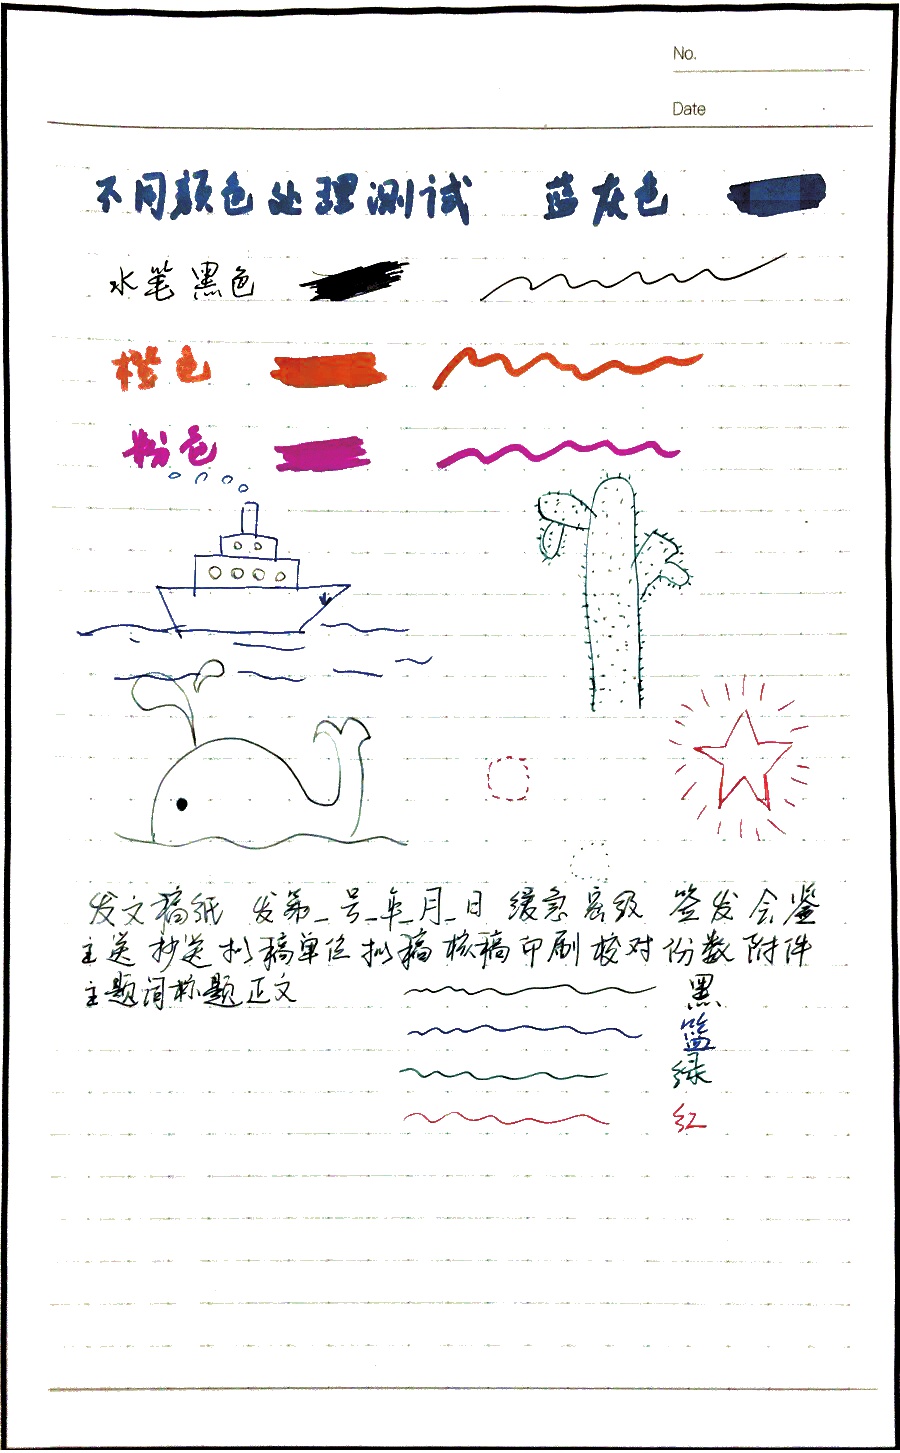 No.
Date
不同颜色处理测试 蓝灰色
水笔黑色
橙色
粉色
发文稿纸 发第_号_年_月_日 缓急 密级 签发 会鉴
主送 抄送 拟稿单位 拟稿 核稿 印刷 校对 份数 附件
主题词标题正文
黑
蓝
绿
红